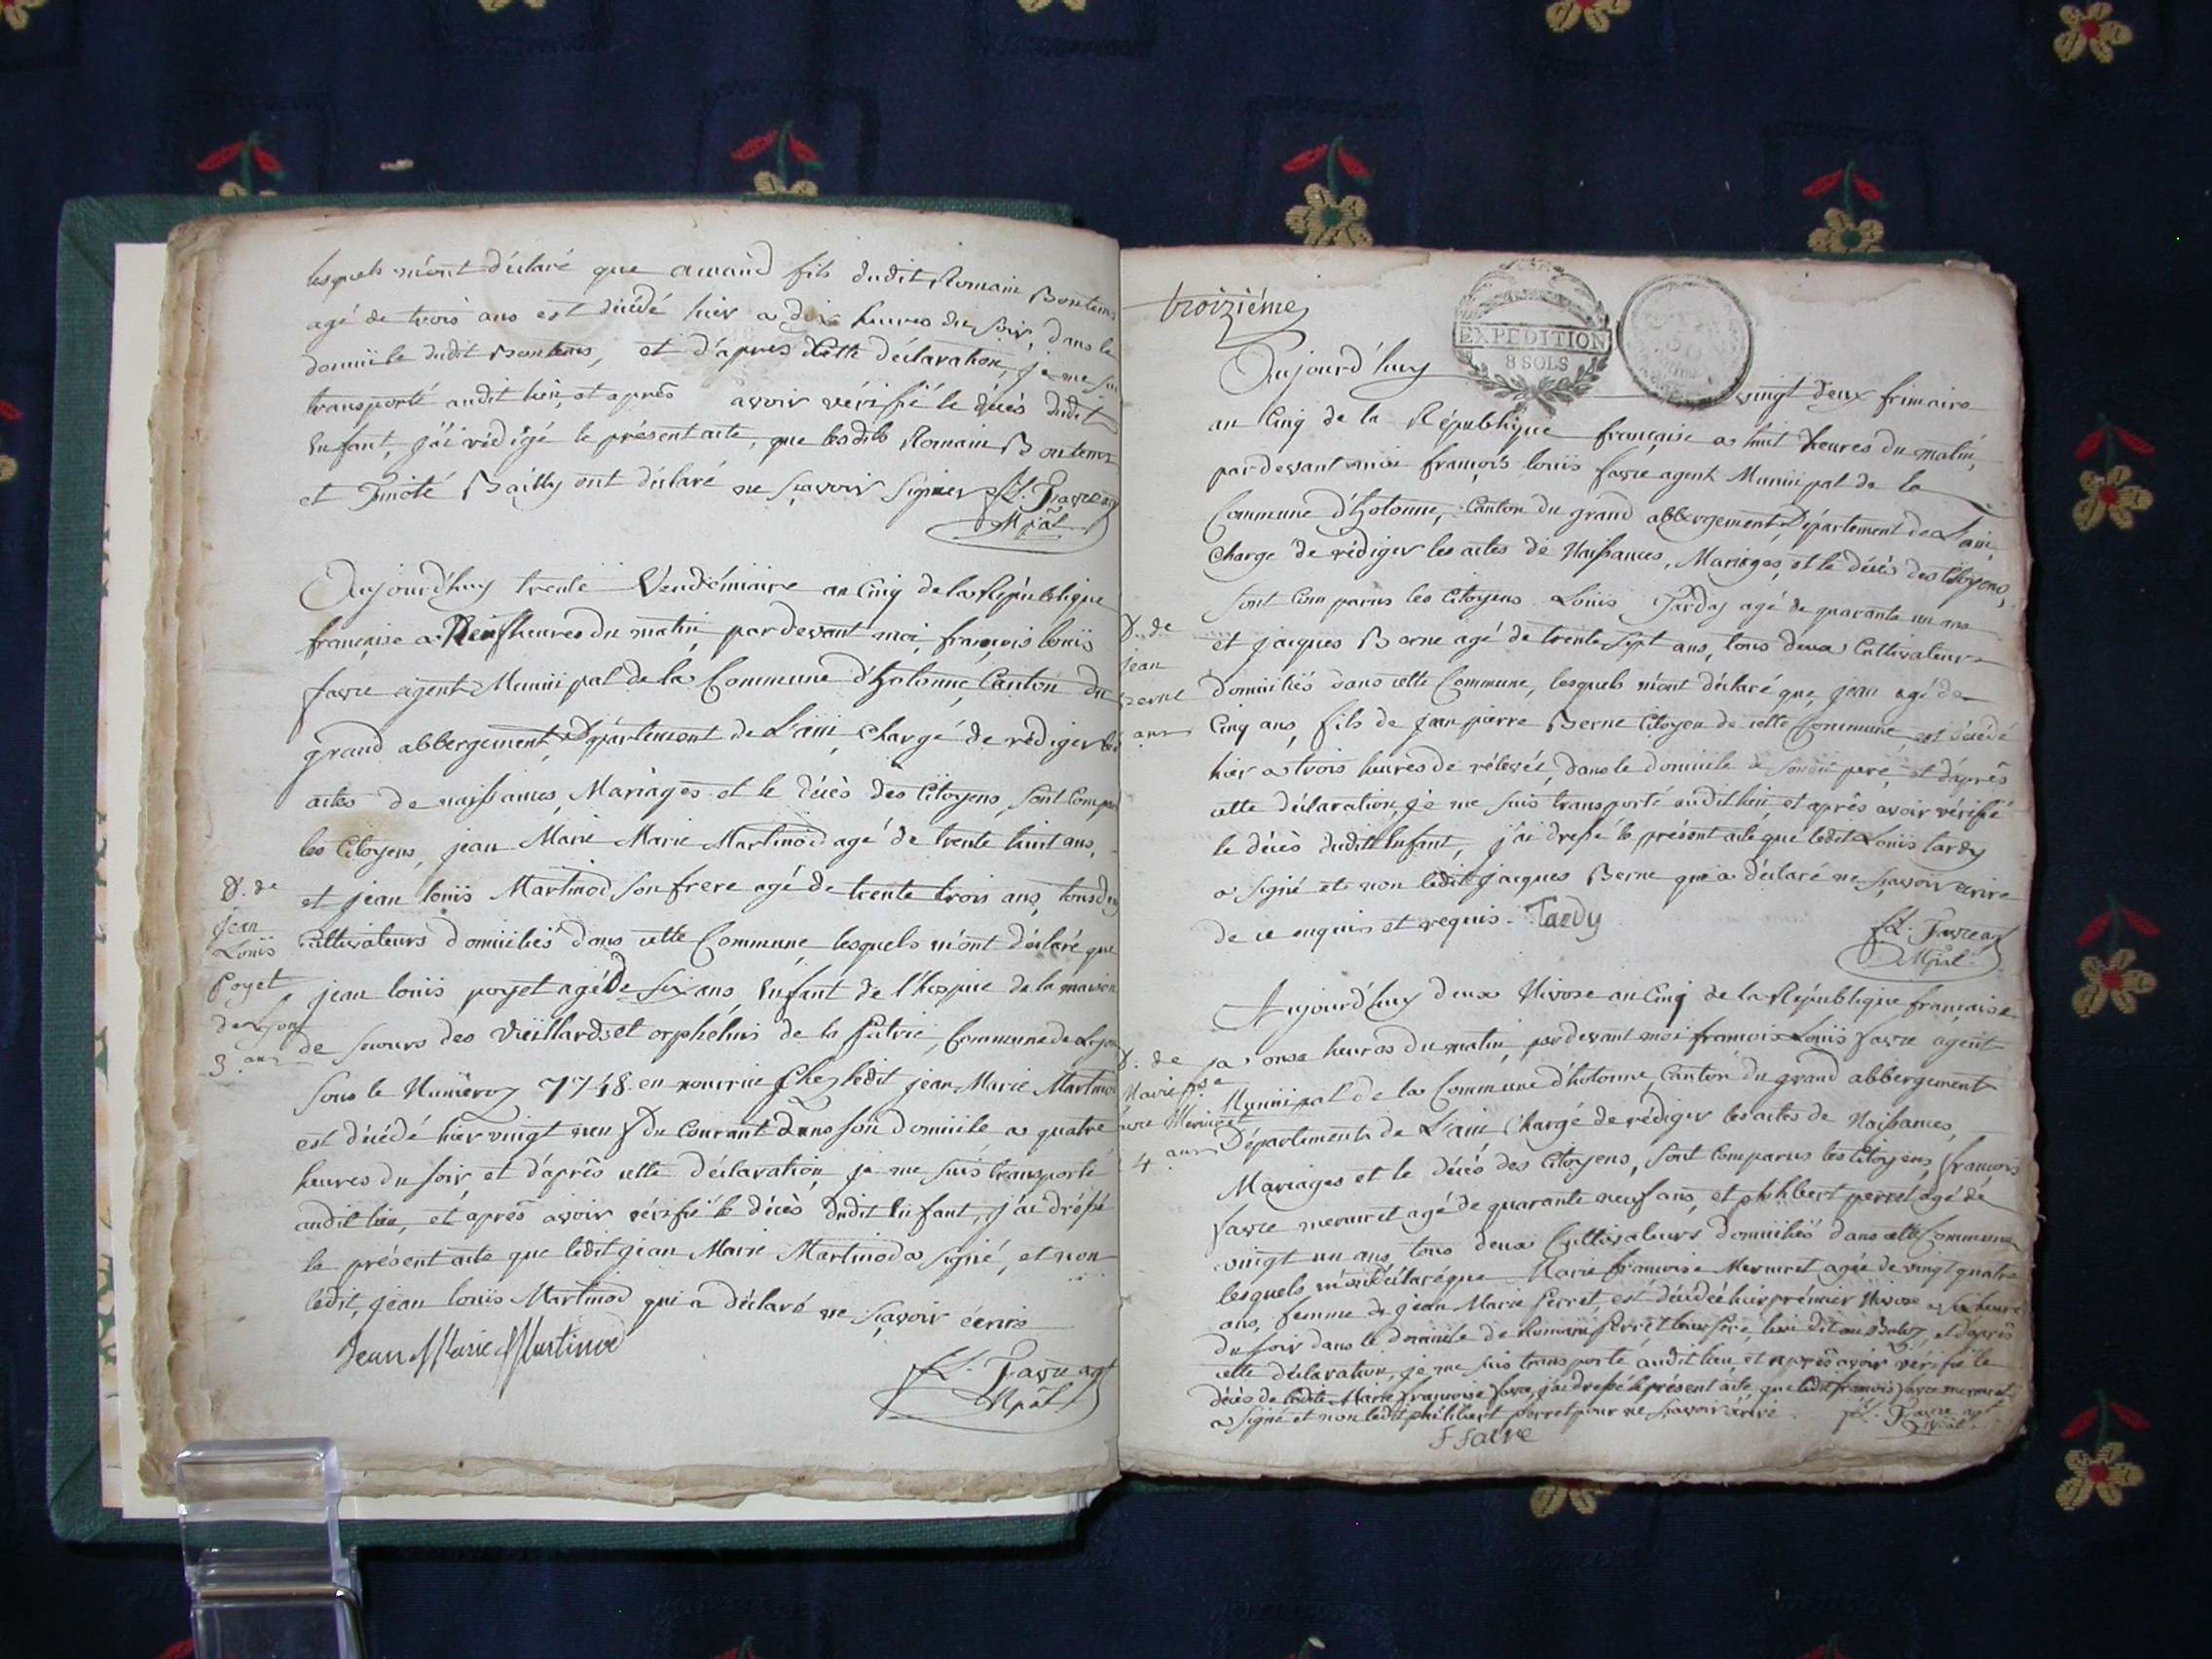 lesquels m'ont déclaré que amand fils dudit Romain Bontems
agé de trois ans est décédé hier a dix heures du soir, dans le
domicile dudit Bontems, et d'après cette déclaration, je me suis
transporté audit lieu, et après avoir vérifié le décès dudit
Enfant, j'ai rédigé le présent acte, que lesdits Romain Bontems
et Bailly ont déclaré ne sçavoir signer fL. Favre agt
Mpal
Aujourd'huy trente Vendémiaire an Cinq de la République
française a Neuf heures du matin, pardevant moi, françois louis
favre agent Municipal de la Commune d'hotonne, Canton du
grand abbergement, Département de L'ain, chargé de rédiger les
actes de naissances, Mariages et le décès des Citoyens, sont comparus
les Citoyens, jean Marie Marie Martinod agé de trente huit ans,
D. de
jean
Louis
Poyet
de Lyon
3 ans
et jean louis Martinod, son frere agé de trente trois ans, tous deux
Cultivateurs domiciliés dans cette Commune, lesquels m'ont déclaré que
jean louis poyet agé de six ans, Enfant de l'hospice de la maison
de secours des Vieillards et orphelins de la patrie, Commune de Lyon
sous le Numéro 7748 en nourrice chez ledit jean Marie Martinod
est décédé hier vingt neuf du Courant dans son domicile a quatre
heures du soir, et d'après cette déclaration, je me suis transporté
audit lieu, et après avoir vérifié le décès dudit Enfant, j'ai dréssé
le présent acte que ledit jean Marie Martinod a signé, et non
ledit jean louis Martinod qui a déclaré ne sçavoir écrire
Jean Marie Martinod
fL. Favre agt
Mpal
troiziéme
EXPEDITION
8 SOLS
Aujourd'huy vingt deux frimaire
an Cinq de la République française a huit heures du matin,
pardevant moi françois louis favre agent Municipal de la
Commune d'hotonne, Canton du grand abbergement, Département de L'ain,
Chargé de rédiger les actes de Naissances, Mariages, et le décès des Citoyens,
sont comparus les Citoyens Louis Tardy agé de quarante un ans
D. de
jean
Berne
ans
et jacques Berne agé de trente sept ans, tous deux Cultivateurs
domiciliés dans cette Commune, lesquels m'ont déclaré que, jean agé de
Cinq ans, fils de jean pierre Berne Citoyen de cette Commune est décédé
hier a trois heures de rélevée, dans le domicile de son père, et d'après
cette déclaration, je me suis transporté audit lieu, et après avoir vérifié
le décès dudit Enfant, j'ai dressé le présent acte que ledit Louis tardy
a signé et non ledit jacques Berne qui a déclaré ne sçavoir ecrire
de ce enquis et requis. Tardy
fL. Favre agt
Mpal
Aujourd'huy deux Nivose an Cinq de la République française
D. de
Marie fse
Mermet
4 ans
a onze heures du matin, pardevant moi francois Louis favre agent
Municipal de la Commune d'hotonne, Canton du grand abbergement
Département de L'ain Chargé de rédiger les actes de Naissances,
Mariages et le décés des Citoyens, sont comparus les Citoyens, françois
favre mermet agé de quarante neuf ans, et philibert perret agé de
vingt un ans, tous deux Cultivateurs domiciliés dans cette Commune
lesquels m'ont déclaré que Marie francoise Mermet agée de vingt quatre
ans, femme de jean Marie Perret, est décédée hier prémier Nivose a six heures
du soir dans le domicile de Romain perret leur père lieu dit au et d'après
cette déclaration, je me suis transporté audit lieu, et après avoir vérifié le
décès de ladite Marie françoise favre, j'ai dressé le présent acte, que ledit françois favre mermet
a signé et non ledit philibert perret pour ne sçavoir écrire. fL. Favre agt
Mpal
F favre